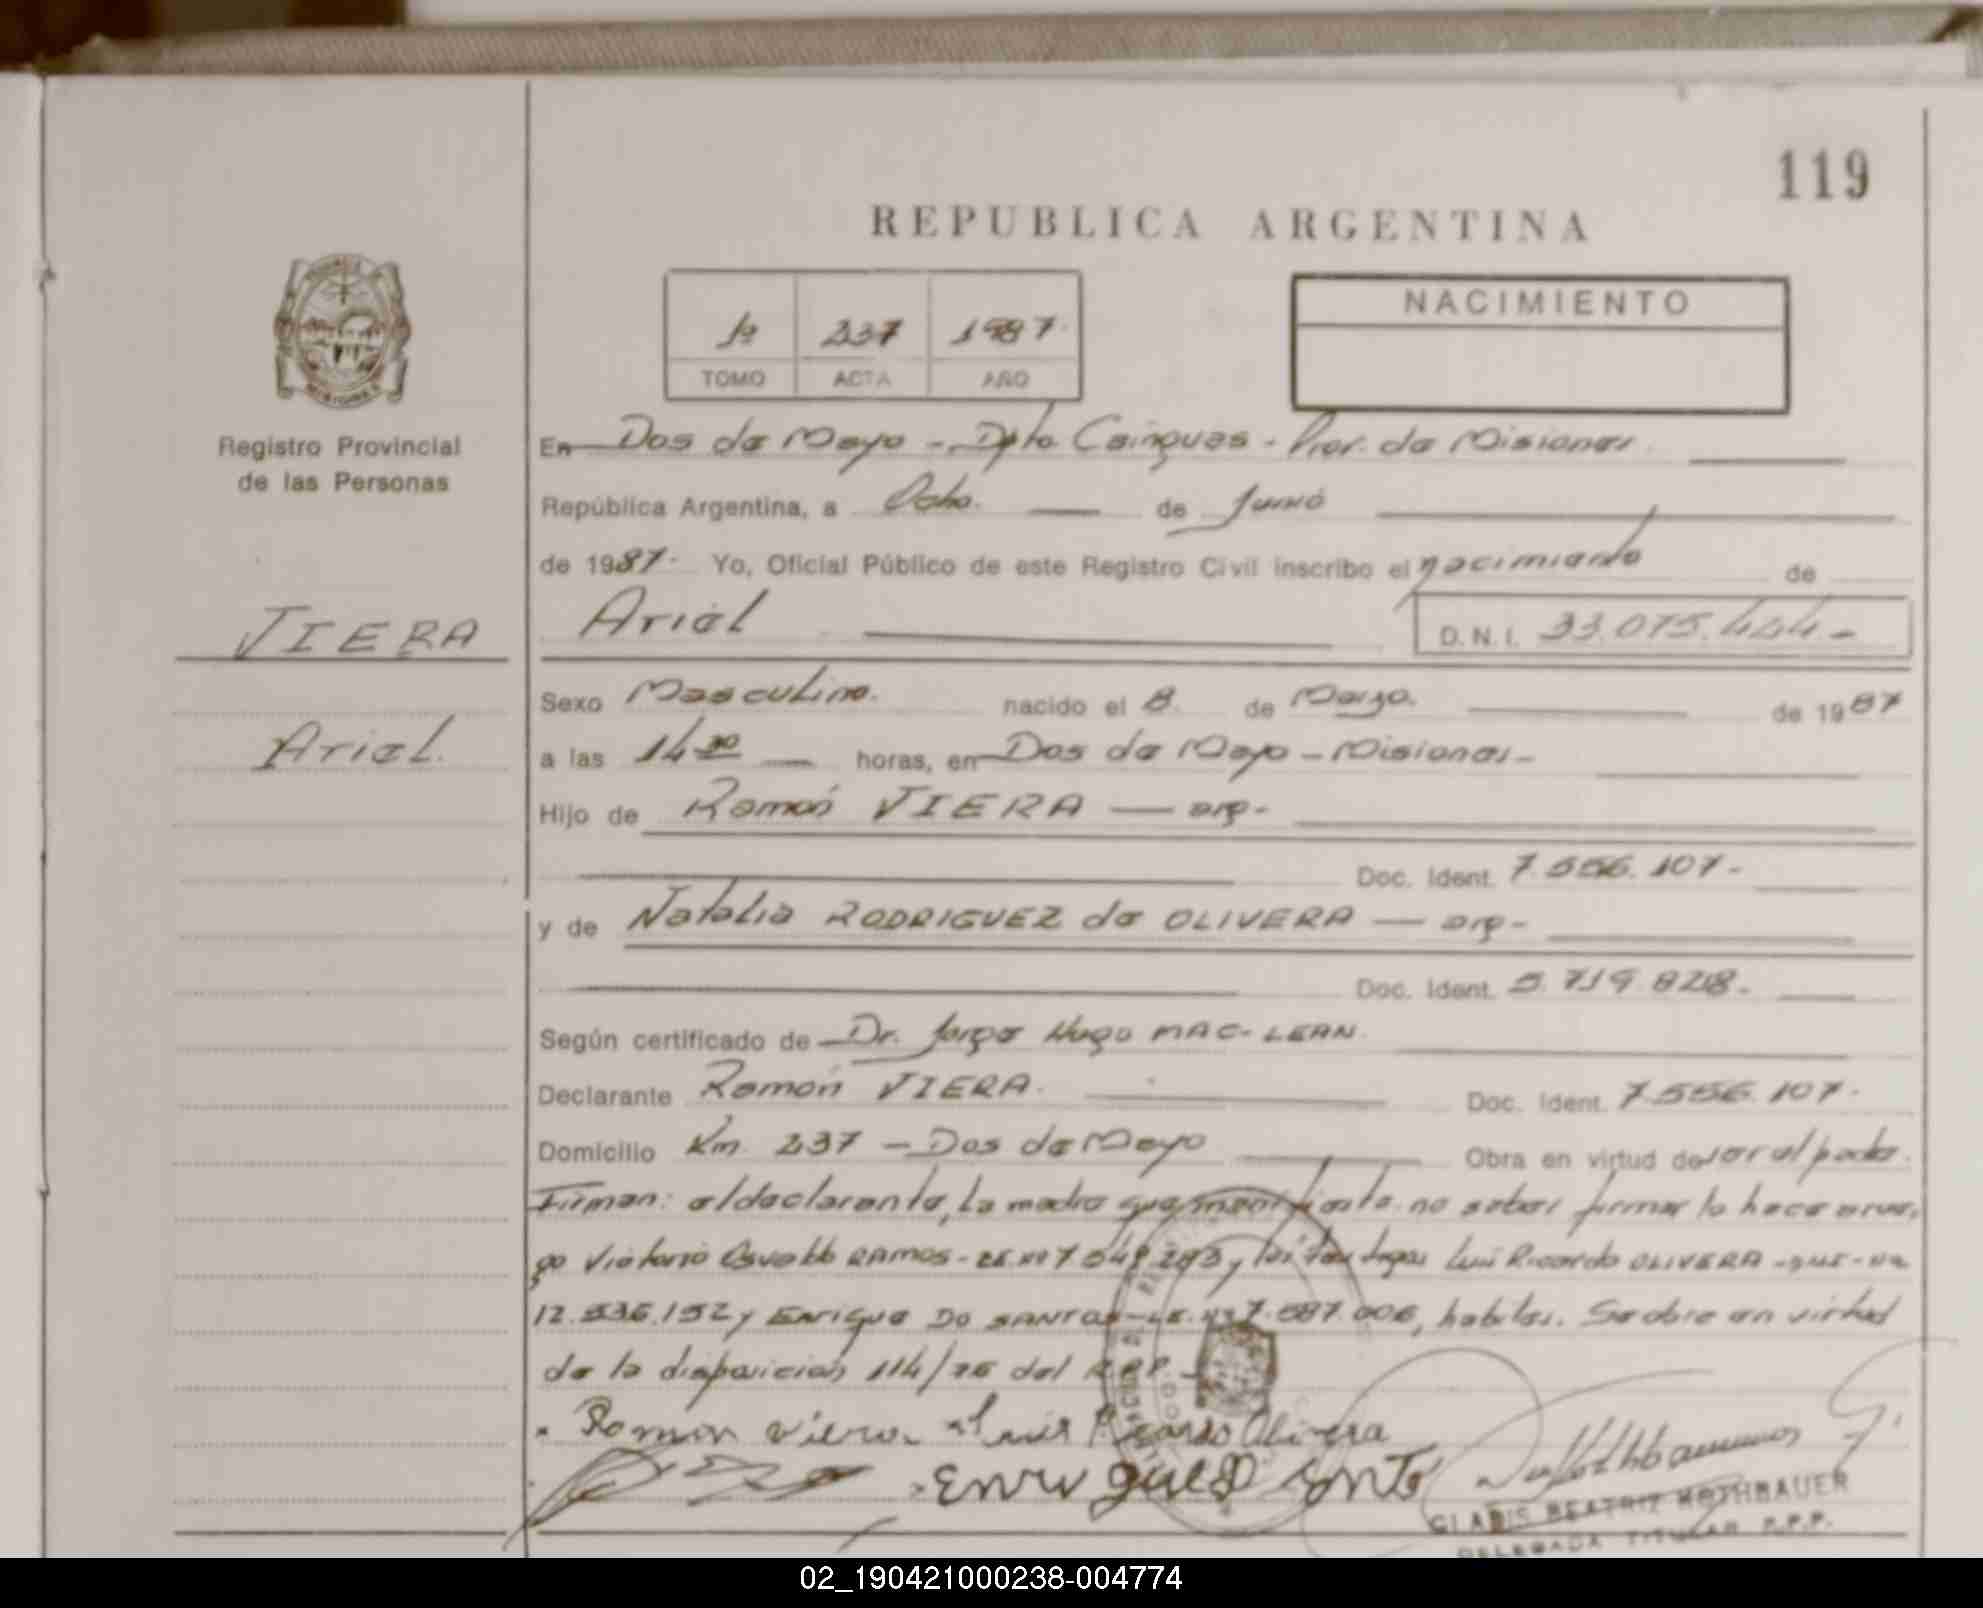 119
REPUBLICA ARGENTINA
1º 237 1987.
TOMO ACTA AÑO
NACIMIENTO
Registro Provincial
de las Personas
VIERA
Ariel.
En Dos de Mayo - Dpto Cainguas - Prov. de Misiones.
República Argentina, a Ocho. de Junio
de 1987. Yo, Oficial Público de este Registro Civil inscribo el nacimiento de
Ariel D.N.I. 33.075.444-
Sexo Masculino. nacido el 8. de Marzo. de 1987
a las 14 30 horas, en Dos de Mayo - Misiones -
Hijo de Ramón VIERA — arg-
Doc. Ident. 7.556.107-
y de Natalia RODRIGUEZ de OLIVERA — arg-
Doc. Ident. 5.719.828-
Según certificado de Dr. Jorge Hugo MAC-LEAN.
Declarante Ramón VIERA. Doc. Ident. 7.556.107.
Domicilio Km. 237 - Dos de Mayo Obra en virtud de ser el padre.
Firman: el declarante, la madre que manifiesta no saber firmar lo hace a rue,
go Victorio Osvaldo RAMOS - y los testigos Luis Ricardo OLIVERA
12.536.152 y Enrique DO SANTOS - LE. Nº 7.687.006, habiles. Se obra en virtud
de la disposición 114/76 del R.P.P. -
Ramon Viera Luis Ricardo Olivera
Enrique D Santo
GLADIS BEATRIZ ROTHBAUER
DELEGADA TITULAR R.P.P.
02_190421000238-004774